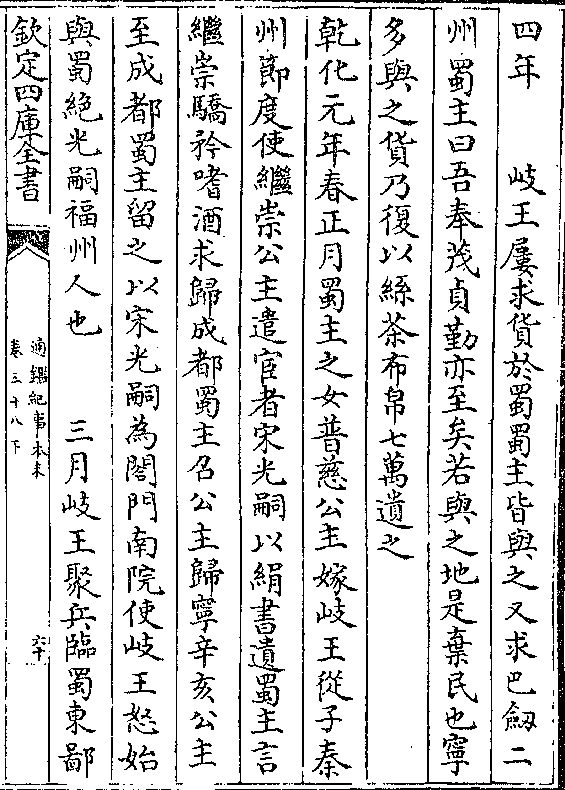 四年　　岐王屢求貨於蜀蜀主皆與之又求巴劒二
州蜀主曰吾奉茂貞勤亦至矣若與之地是棄民也寧
多與之貨乃復以絲茶布帛七萬遺之
乾化元年春正月蜀主之女普慈公主嫁岐王從子秦
州節度使繼崇公主遣宦者宋光嗣以絹書遺蜀主言
繼崇驕矜嗜酒求歸成都蜀主召公主歸寧辛亥公主
至成都蜀主留之以宋光嗣為閤門南院使岐王怒始
與蜀絶光嗣福州人也　　三月岐王聚兵臨蜀東鄙
欽定四庫全書
通鑑紀事本末
卷三十八下
六十